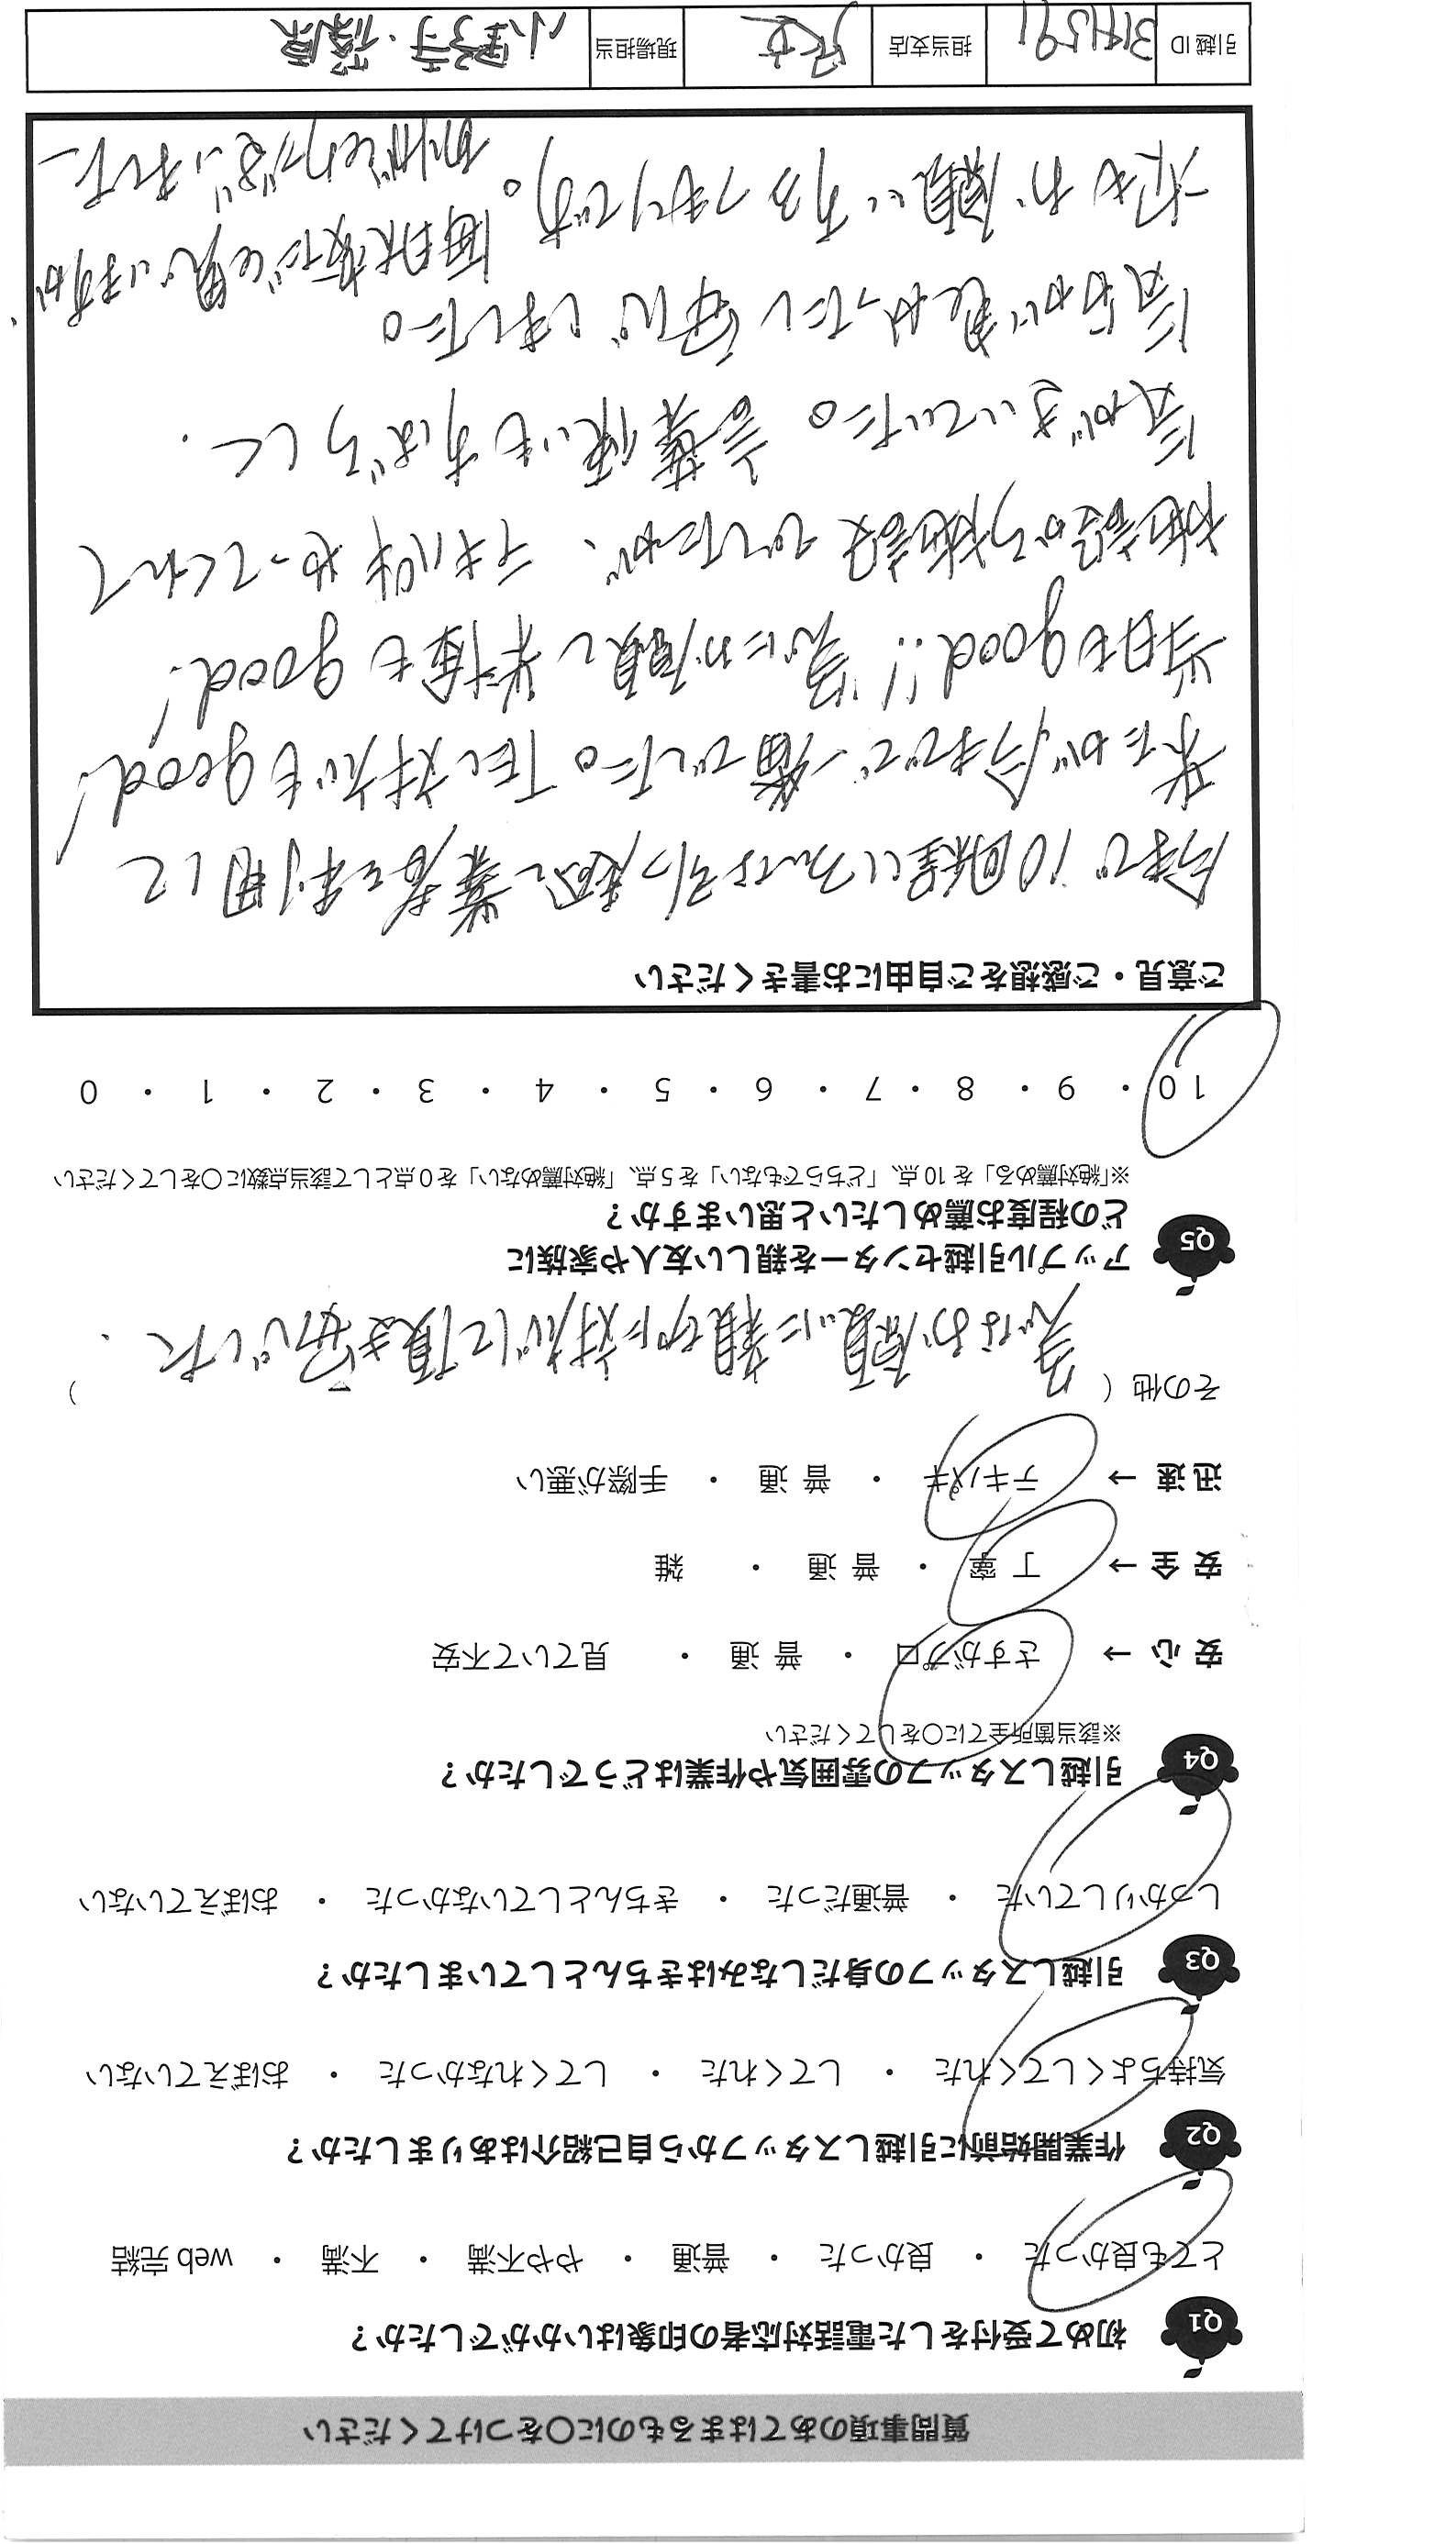 質問事項のあてはまるものに〇をつけてください
Q1 初めて受付をした電話対応者の印象はいかがでしたか？
とても良かった ・ 良かった ・ 普通 ・ やや不満 ・ 不満 ・ web 完結
Q2 作業開始前に引越しスタッフから自己紹介はありましたか？
気持ちよくしてくれた ・ してくれた ・ してくれなかった ・ おぼえていない
Q3 引越しスタッフの身だしなみはきちんとしていましたか？
しっかりしていた ・ 普通だった ・ きちんとしていなかった ・ おぼえていない
Q4 引越しスタッフの雰囲気や作業はどうでしたか？
※該当箇所全てに〇をしてください
安 心 → さすがプロ ・ 普 通 ・ 見ていて不安
安 全 → 丁 寧 ・ 普 通 ・ 雑
迅 速 → テキパキ ・ 普 通 ・ 手際が悪い
その他（ 急なお願いに親切に対応して頂き でした。 ）
Q5 アップル引越センターを親しい友人や家族に
どの程度お薦めしたいと思いますか？
※「絶対薦める」を 10 点、「どちらでもない」を 5 点、「絶対薦めない」を 0 点として該当点数に〇をしてください
10 ・ 9 ・ 8 ・ 7 ・ 6 ・ 5 ・ 4 ・ 3 ・ 2 ・ 1 ・ 0
ご意見・ご感想をご自由にお書きください
今まで10回程いろいろな引っ越し業者を利用して
来たが今までで一番でした。 対応もgood!
当日もgood!! 急にお願いし 作業もgood!
施設から施設でしたが、テキパキやってくれて
気がきいていた。言葉使いもすばらしく、
気持が良かったし安心しました。
次もお願いするつもりです。
毎日大変だと思いますが、
ありがとうございました
引越 ID 314591 担当支店 現場担当 小野寺・篠原